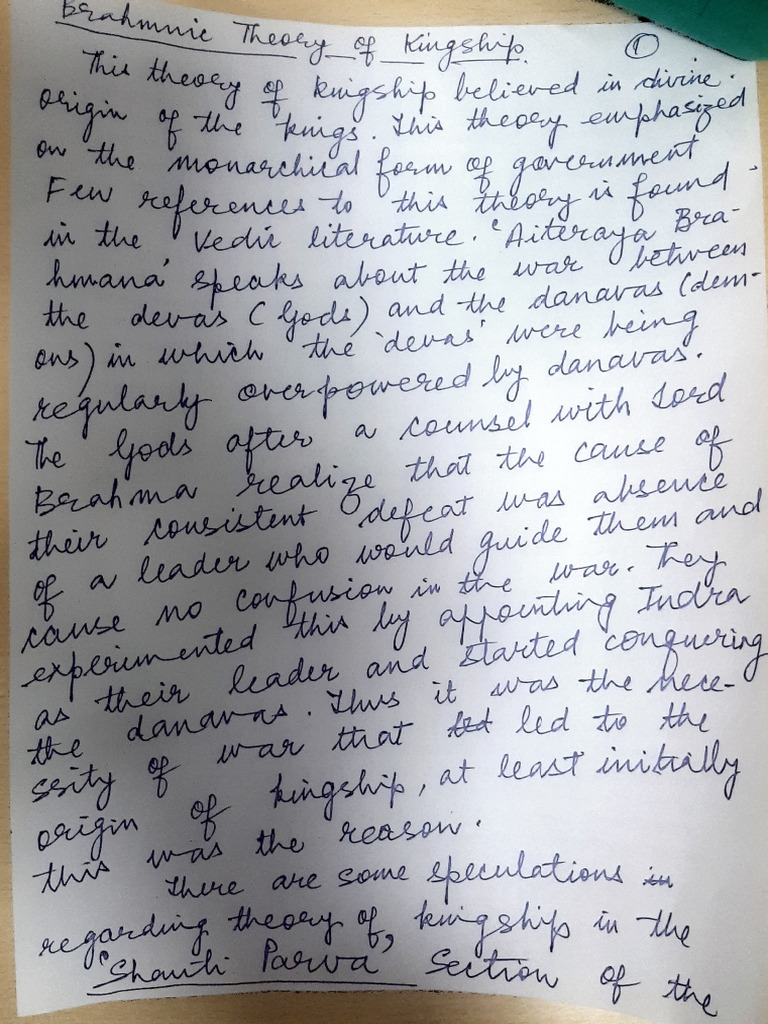 Brahmnic Theory of Kingship.
①
This theory of kingship believed in divine
origin of the kings. This theory emphasized
on the monarchical form of government
Few references to this theory is found
in the Vedic literature. 'Aiteraya Bra-
hmana' speaks about the war between
the devas (Gods) and the danavas (dem-
ons) in which the 'devas' were being
regularly overpowered by danavas.
The Gods after a counsel with Lord
Brahma realize that the cause of
their consistent defeat was absence
of a leader who would guide them and
cause no confusion in the war. They
experimented this by appointing Indra
as their leader and started conquering
the danavas. Thus it was the nece-
ssity of war that led to the
origin of kingship, at least initially
this was the reason.
There are some speculations in
regarding theory of kingship in the
'Shanti Parva' Section of the